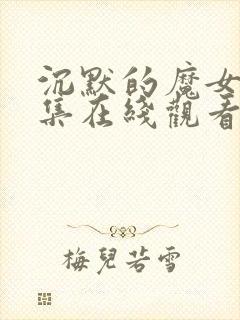 沉默的魔女
集在綫觀看
梅兒若雪